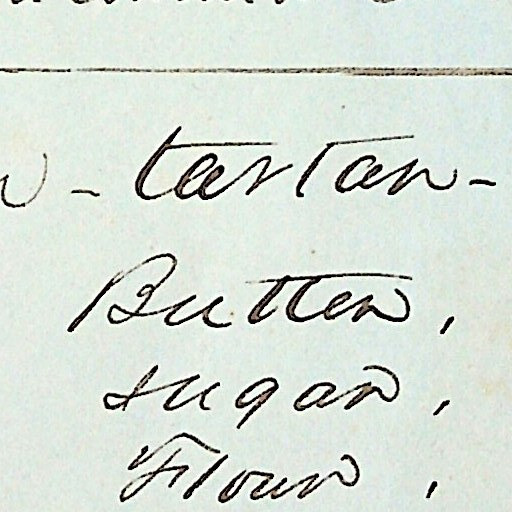 - tartar -
Butter,
sugar,
Flour,